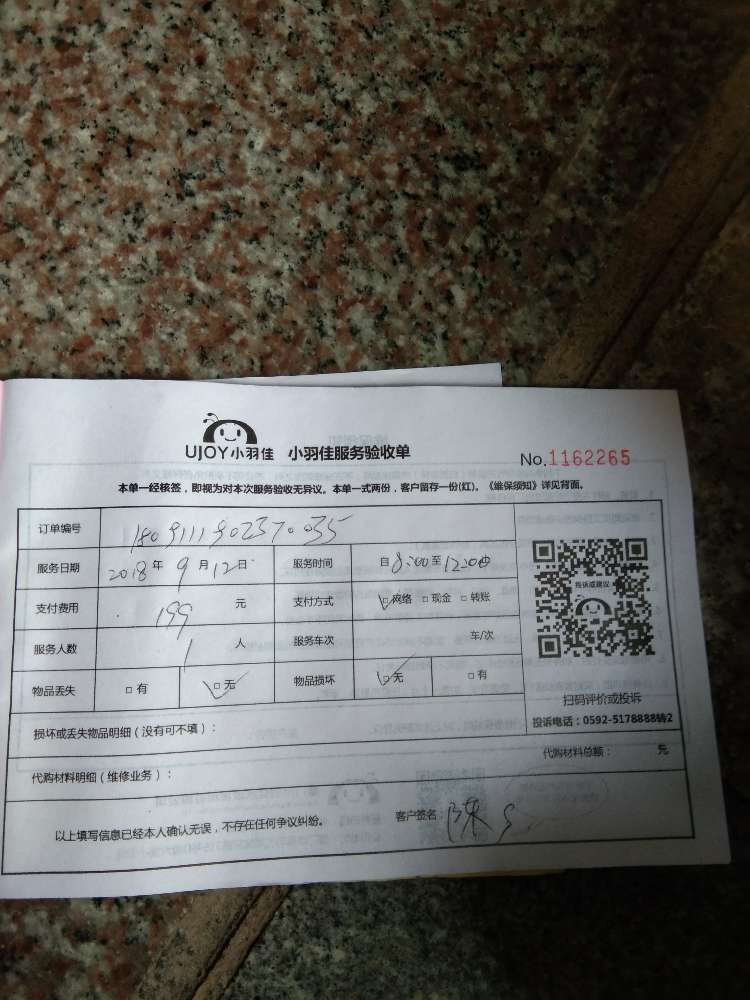 UJOY小羽佳 小羽佳服务验收单
No.1162265
本单一经核签，即视为对本次服务验收无异议。本单一式两份，客户留存一份(红)。《维保须知》详见背面。
订单编号 1809111902370035
服务日期 2018年9月12日 服务时间 自8:00至12:00
支付费用 199 元 支付方式 □网络 □现金 □转账
服务人数 1 人 服务车次 车/次
物品丢失 □有 □无 物品损坏 □无 □有
投诉或建议
扫码评价或投诉
投诉电话：0592-5178888转2
损坏或丢失物品明细（没有可不填）：
代购材料总额： 元
代购材料明细（维修业务）：
以上填写信息已经本人确认无误，不存在任何争议纠纷。 客户签名：陈